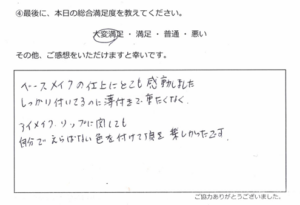 ④最後に、本日の総合満足度を教えてください。
大変満足・満足・普通・悪い
その他、ご感想をいただけますと幸いです。
ベースメイクの仕上にとても感動しました
しっかり付いてるのに薄付きで重たくなく、
アイメイク、リップに関しても
自分でえらばない色を付けて頂き楽しかったです。
ご協力ありがとうございました。